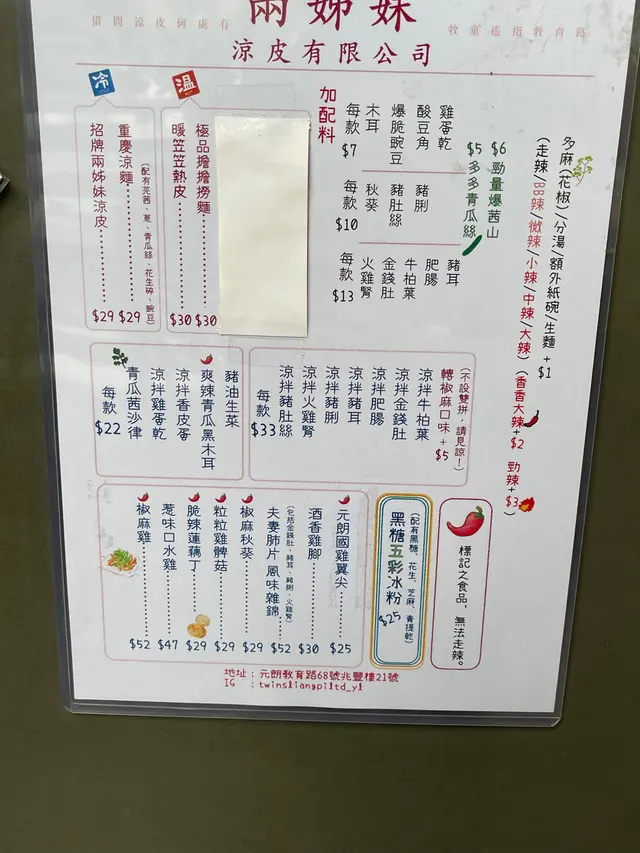 借問涼皮何處有
兩姊妹
牧童遙指教育路
涼皮有限公司
冷
招牌兩姊妹涼皮 $29
重慶涼麵 $29
(配有芫茜、蔥、青瓜絲、花生碎、豌豆)
溫
暖笠笠熱皮 $30
極品擔擔撈麵 $30
加配料
每款 $7
木耳
爆脆豌豆
酸豆角
雞蛋乾
每款 $10
秋葵
豬肚絲
豬脷
每款 $13
火雞腎
金錢肚
牛柏葉
肥腸
豬耳
$5 多多青瓜絲
$6 勁量爆茜山
多麻(花椒)/分湯/額外紙碗/生麵 +$1
(走辣/BB辣/微辣/小辣/中辣/大辣)
(香香大辣+$2 勁辣+$3)
每款 $22
青瓜茜沙律
涼拌雞蛋乾
涼拌香皮蛋
爽辣青瓜黑木耳
豬油生菜
每款 $33
涼拌豬肚絲
涼拌火雞腎
涼拌豬脷
涼拌豬耳
涼拌肥腸
涼拌金錢肚
涼拌牛柏葉
轉椒麻口味+$5
(不設雙拼，請見諒！)
椒麻雞 $52
惹味口水雞 $47
脆辣蓮藕丁 $29
粒粒雞髀菇 $29
椒麻秋葵 $29
夫妻肺片 風味雜錦 $52
(包括金錢肚、豬耳、豬脷、火雞腎)
酒香雞腳 $30
元朗國雞翼尖 $25
黑糖五彩冰粉 $25
(配有黑糖、花生、芝麻、青提乾)
標記之食品，無法走辣。
地址：元朗教育路68號兆豐樓21號
IG ：twinsliangpiltd_yl